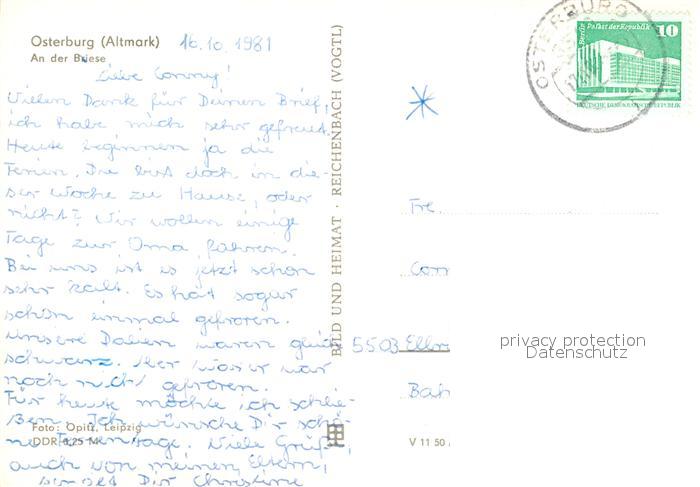 Osterburg (Altmark) 16.10.1981
An der Biese
Liebe Conny!
Vielen Dank für Deinen Brief,
ich habe mich sehr gefreut.
Heute beginnen ja die
Ferien. Du bist doch in die-
ser Woche zu Hause, oder
nicht? Wir wollen einige
Tage zur Oma fahren.
Bei uns ist es jetzt schon
sehr kalt. Es hat sogar
schon einmal gefroren.
Unsere Dalien waren gleich
schwarz. Aber Wasser war
noch nicht gefroren.
Für heute möchte ich schlie-
ßen. Ich wünsche Dir schö-
ne Ferientage. Viele Grüße
auch von meinen Eltern,
sendet Dir Christine
Foto: Opitz, Leipzig
DDR 0,25 M
BILD UND HEIMAT · REICHENBACH (VOGTL)
V 11 50
OSTERBURG
Berlin Palast der Republik 10
DEUTSCHE DEMOKRATISCHE REPUBLIK
Fre
Conn
5503 Ellr
Bah
privacy protection
Datenschutz